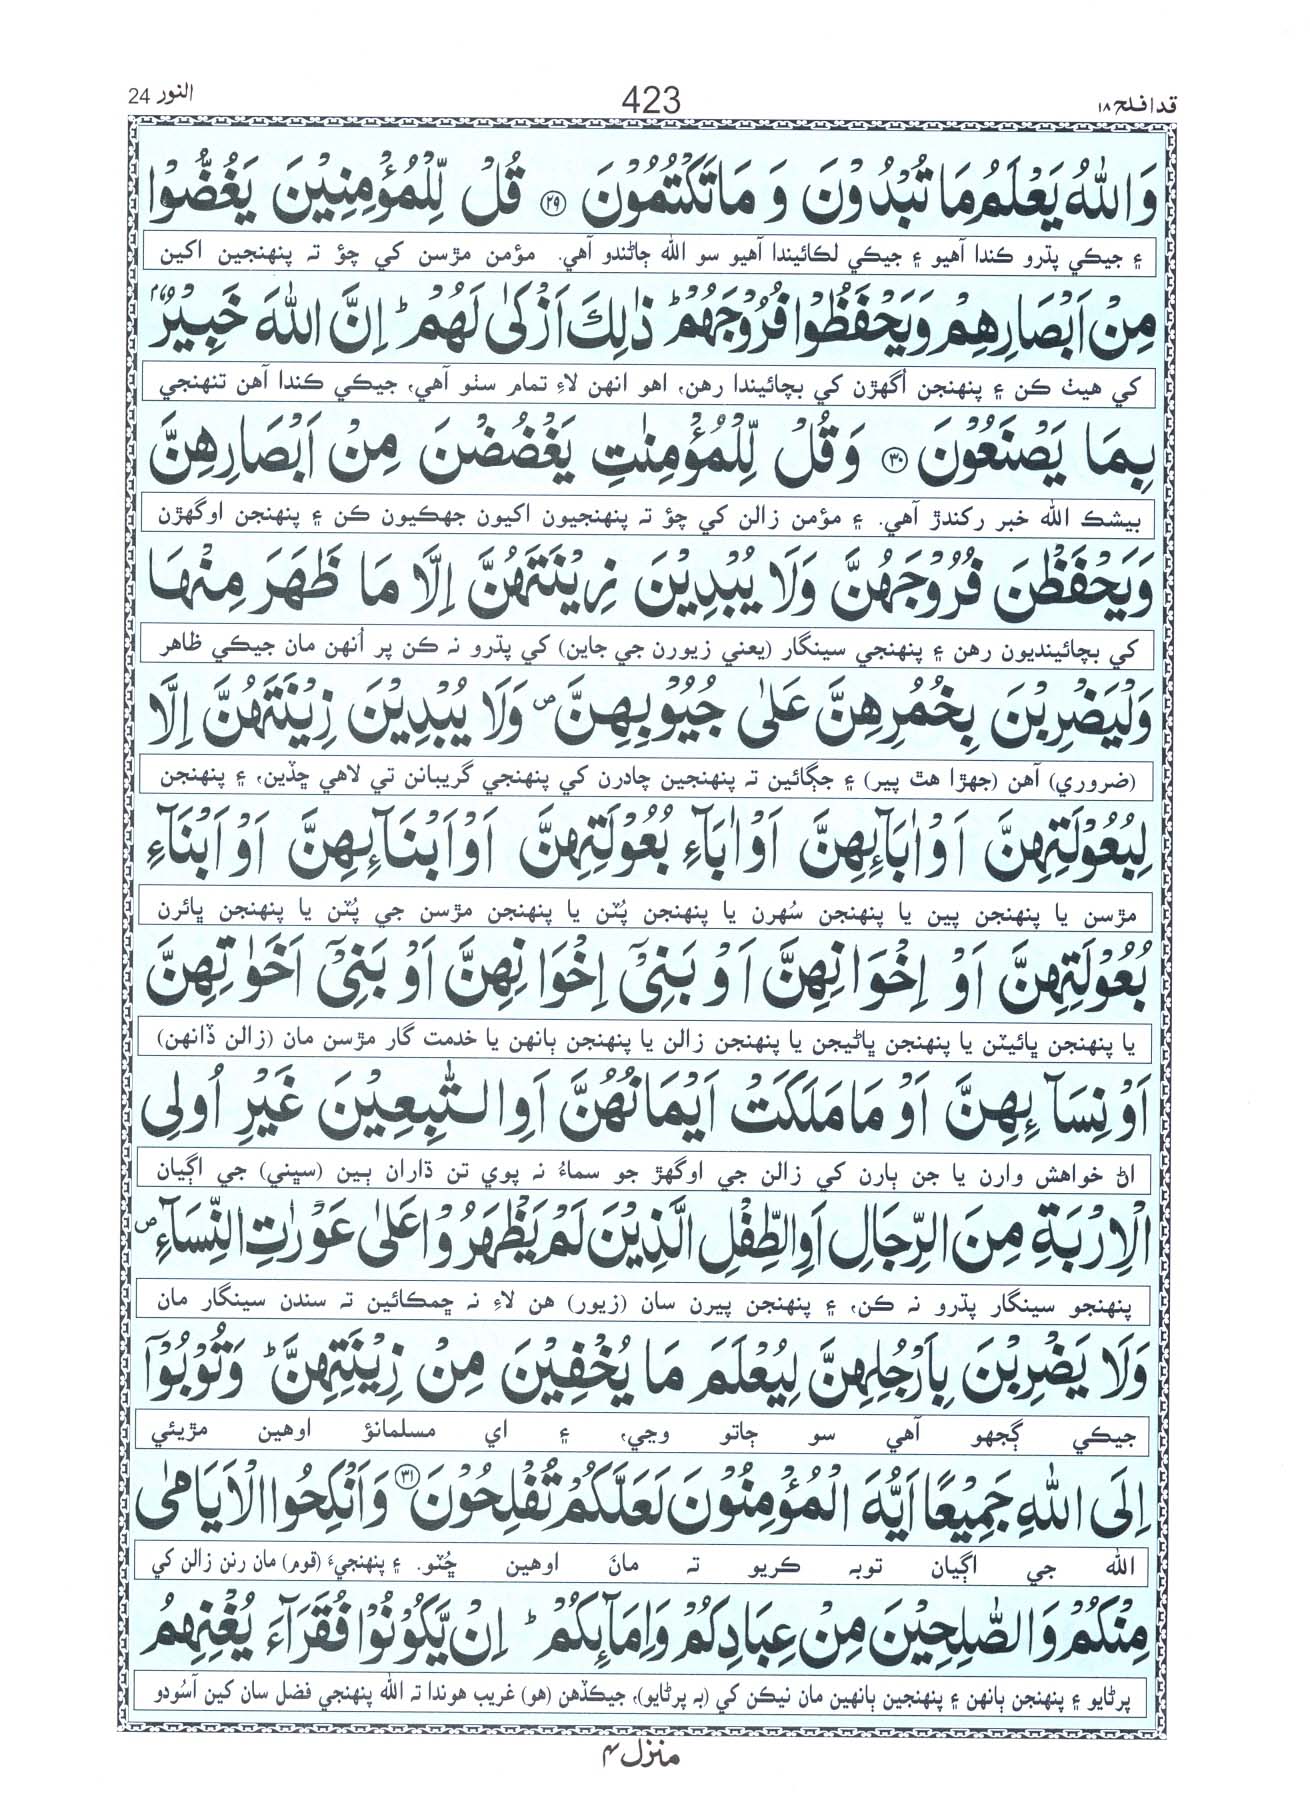 قدافلح ١٨
423
النور 24
وَاللّٰهُ يَعْلَمُ مَا تُبْدُوْنَ وَ مَا تَكْتُمُوْنَ ﴿٢٩﴾ قُلْ لِّلْمُؤْمِنِيْنَ يَغُضُّوْا
۽ جيڪي پڌرو ڪندا آهيو ۽ جيڪي لڪائيندا آهيو سو الله ڄاڻندو آهي. مؤمن مڙسن کي چؤ تہ پنهنجين اکين
مِنْ اَبْصَارِهِمْ وَيَحْفَظُوْا فُرُوْجَهُمْ ؕ ذٰلِكَ اَزْكٰى لَهُمْ ؕ اِنَّ اللّٰهَ خَبِيْرٌۢ
کي هيٺ ڪن ۽ پنهنجن اُگهڙن کي بچائيندا رهن، اهو انهن لاءِ تمام سٺو آهي، جيڪي ڪندا آهن تنهنجي
بِمَا يَصْنَعُوْنَ ﴿٣٠﴾ وَقُلْ لِّلْمُؤْمِنٰتِ يَغْضُضْنَ مِنْ اَبْصَارِهِنَّ
بيشڪ الله خبر رکندڙ آهي. ۽ مؤمن زالن کي چؤ تہ پنهنجيون اکيون جهڪيون ڪن ۽ پنهنجن اوگهڙن
وَيَحْفَظْنَ فُرُوْجَهُنَّ وَلَا يُبْدِيْنَ زِيْنَتَهُنَّ اِلَّا مَا ظَهَرَ مِنْهَا
کي بچائينديون رهن ۽ پنهنجي سينگار (يعني زيورن جي جاين) کي پڌرو نہ ڪن پر اُنهن مان جيڪي ظاهر
وَلْيَضْرِبْنَ بِخُمُرِهِنَّ عَلٰى جُيُوْبِهِنَّ ۪ وَلَا يُبْدِيْنَ زِيْنَتَهُنَّ اِلَّا
(ضروري) آهن (جهڙا هٿ پير) ۽ جڳائين تہ پنهنجين چادرن کي پنهنجي گريبانن تي لاهي ڇڏين، ۽ پنهنجن
لِبُعُوْلَتِهِنَّ اَوْ اٰبَآئِهِنَّ اَوْ اٰبَآءِ بُعُوْلَتِهِنَّ اَوْ اَبْنَآئِهِنَّ اَوْ اَبْنَآءِ
مڙسن يا پنهنجن پين يا پنهنجن سُهرن يا پنهنجن پُٽن يا پنهنجن مڙسن جي پُٽن يا پنهنجن ڀائرن
بُعُوْلَتِهِنَّ اَوْ اِخْوَانِهِنَّ اَوْ بَنِيْٓ اِخْوَانِهِنَّ اَوْ بَنِيْٓ اَخَوٰتِهِنَّ
يا پنهنجن ڀائيٽن يا پنهنجن ڀاڻيجن يا پنهنجن زالن يا پنهنجن ٻانهن يا خدمت گار مڙسن مان (زالن ڏانهن)
اَوْ نِسَآئِهِنَّ اَوْ مَا مَلَكَتْ اَيْمَانُهُنَّ اَوِ التّٰبِعِيْنَ غَيْرِ اُولِى
اڻ خواهش وارن يا جن ٻارن کي زالن جي اوگهڙ جو سماءُ نہ پوي تن ڌاران ٻين (سڀني) جي اڳيان
الْاِرْبَةِ مِنَ الرِّجَالِ اَوِ الطِّفْلِ الَّذِيْنَ لَمْ يَظْهَرُوْا عَلٰى عَوْرٰتِ النِّسَآءِ ۪
پنهنجو سينگار پڌرو نہ ڪن، ۽ پنهنجن پيرن سان (زيور) هن لاءِ نہ ڇمڪائين تہ سندن سينگار مان
وَلَا يَضْرِبْنَ بِاَرْجُلِهِنَّ لِيُعْلَمَ مَا يُخْفِيْنَ مِنْ زِيْنَتِهِنَّ ؕ وَتُوْبُوْٓا
جيڪي ڳجهو آهي سو ڄاتو وڃي، ۽ اي مسلمانؤ اوهين مڙيئي
اِلَى اللّٰهِ جَمِيْعًا اَيُّهَ الْمُؤْمِنُوْنَ لَعَلَّكُمْ تُفْلِحُوْنَ ﴿٣١﴾ وَاَنْكِحُوا الْاَيَامٰى
الله جي اڳيان توبہ ڪريو تہ مانَ اوهين ڇُٽو. ۽ پنهنجيءَ (قوم) مان رنن زالن کي
مِنْكُمْ وَالصّٰلِحِيْنَ مِنْ عِبَادِكُمْ وَاِمَآئِكُمْ ؕ اِنْ يَّكُوْنُوْا فُقَرَآءَ يُغْنِهِمُ
پرڻايو ۽ پنهنجن ٻانهن ۽ پنهنجين ٻانهين مان نيڪن کي (بہ پرڻايو)، جيڪڏهن (هو) غريب هوندا تہ الله پنهنجي فضل سان کين آسُودو
منزل ۴